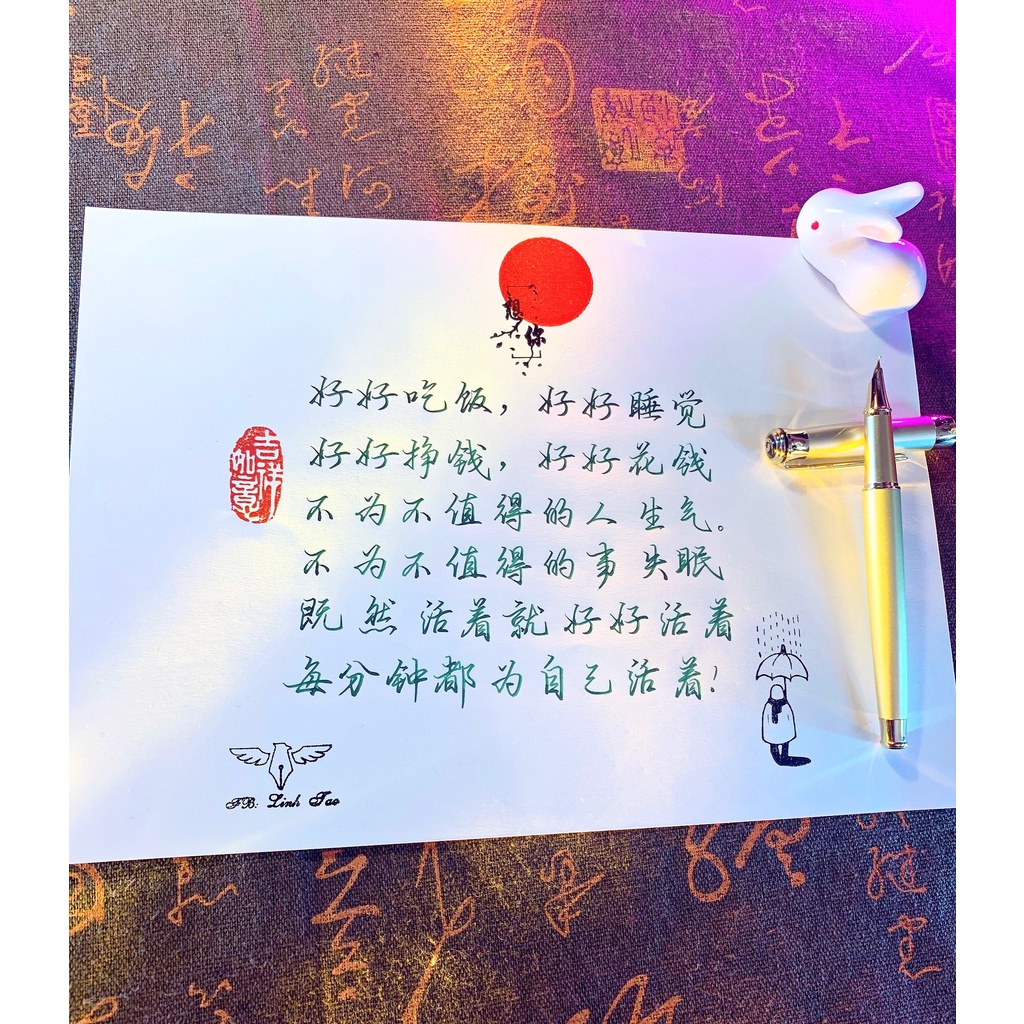 想你
好好吃饭，好好睡觉
好好挣钱，好好花钱
不为不值得的人生气。
不为不值得的事失眠
既然活着就好好活着
每分钟都为自己活着！
吉祥如意
FB: Linh Tao